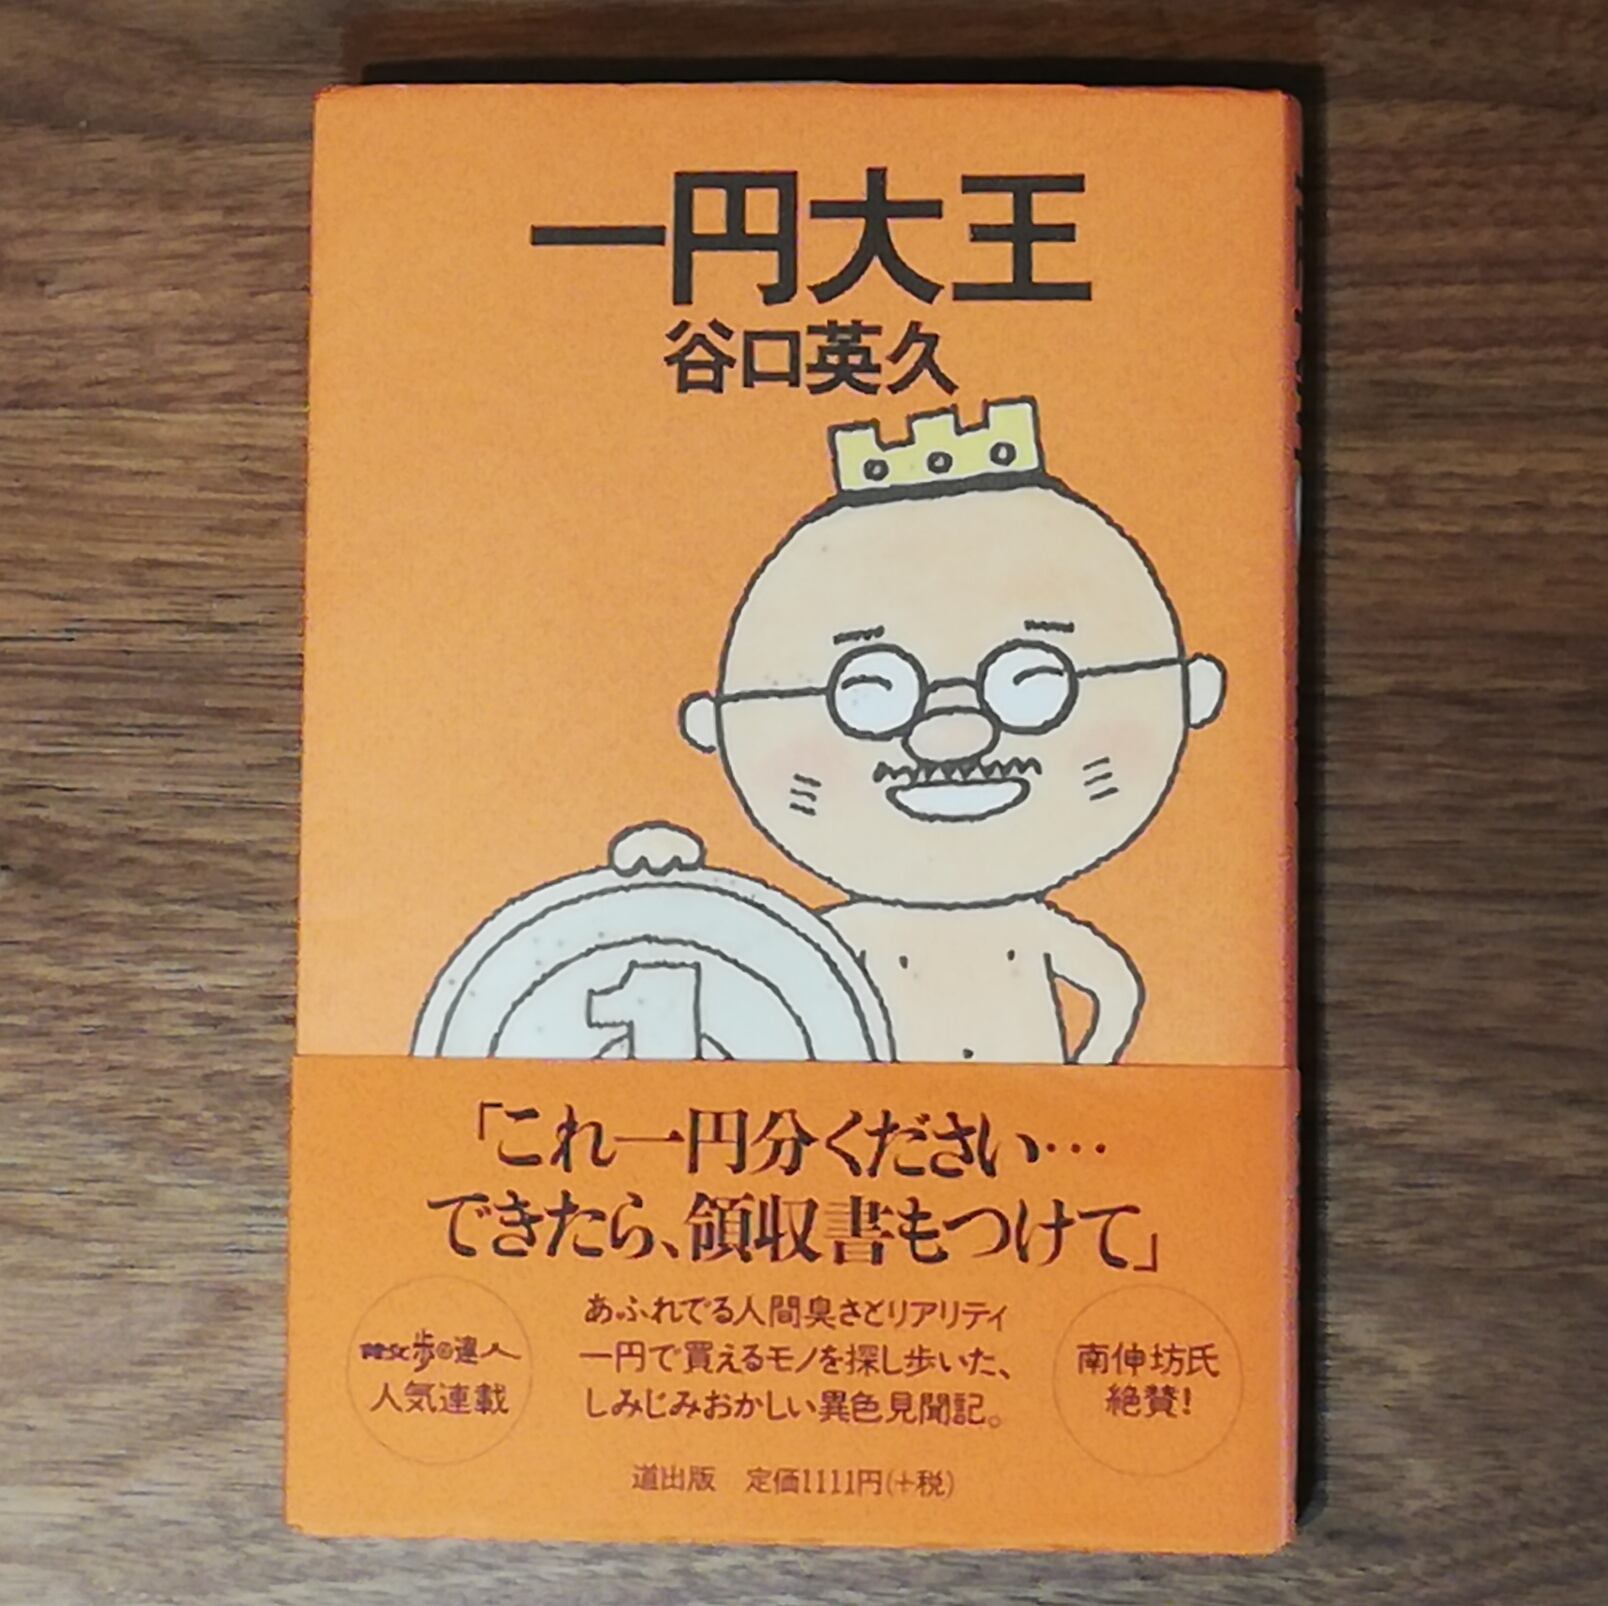 一円大王
谷口英久
1
「これ一円分ください…
できたら、領収書もつけて」
散歩の達人
人気連載
あふれでる人間臭さとリアリティ
一円で買えるモノを探し歩いた、
しみじみおかしい異色見聞記。
南伸坊氏
絶賛!
道出版 定価1111円(+税)